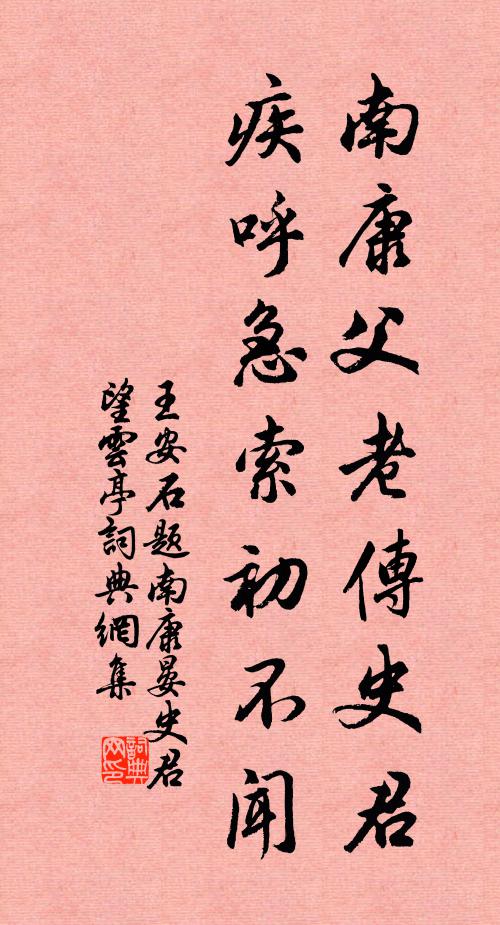 南康父老傳史君
疾呼急索初不闻
王安石题南康晏史君
望雲亭詞典網集
詞典
网印